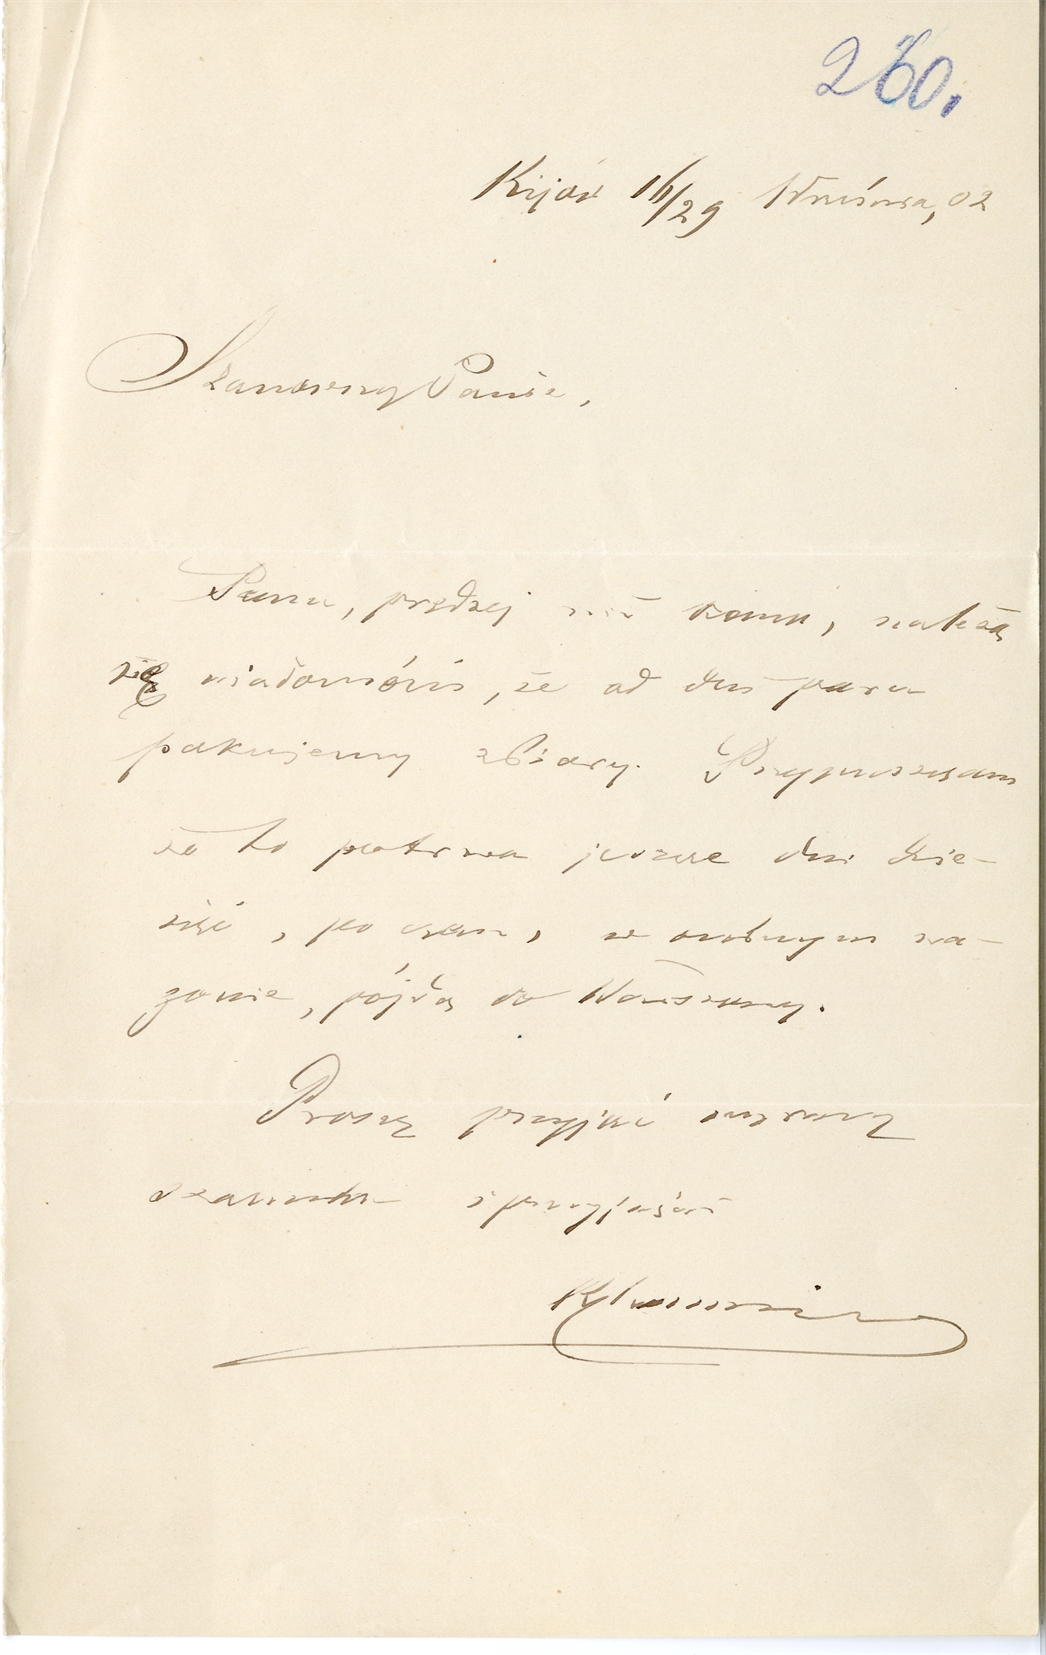 260.
Kijów 16/29 Września, 02
Szanowny Panie,
Panu, prędzej niż komu, należą
się wiadomości, że od dni paru
pakujemy zbiory. Przypuszczam
że to potrwa jeszcze dni dzie-
sięć, po czem, w osobnym wa-
gonie, pójdą do Warszawy.
Proszę przyjąć wyrazy
szacunku i przyjaźni